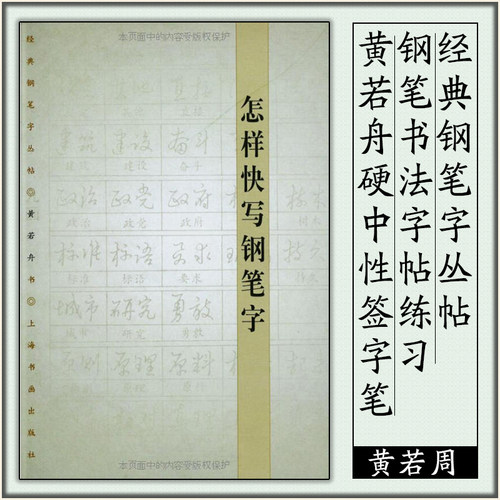 本页面中的内容受版权保护
经典钢笔字丛帖◎黄若舟书◎上海书画出版社
怎样快写钢笔字
建筑 建设 奋斗
政治 政党 政府
政治 政党 政府
标准 标语 要求
标准 标语 要求
城市 研究 勇敢
城市 研究 勇敢
原则 原理 原料
本页面中的内容受版权保护
经典钢笔字丛帖
钢笔书法字帖练习
黄若舟硬中性签字笔
黄若周